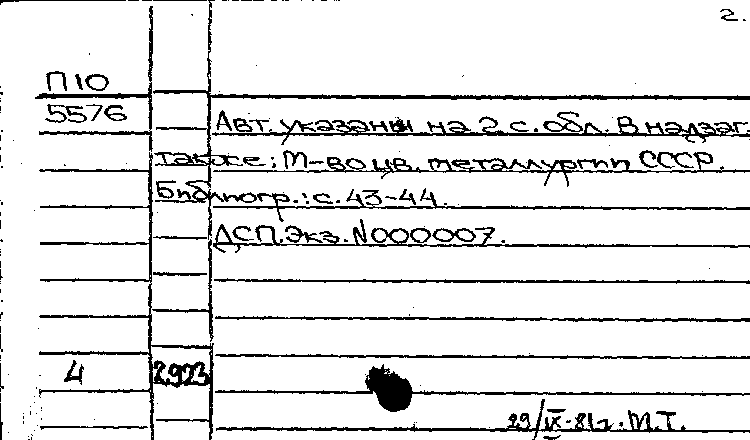 2.
П10
5576
Авт. указаны на 2 с. обл. В надзаг.
также: М-во цв. металлургии СССР.
Библиогр.: с. 43-44.
ДСП. Экз. N000007.
4 2923
29/IX-81г. М.Т.